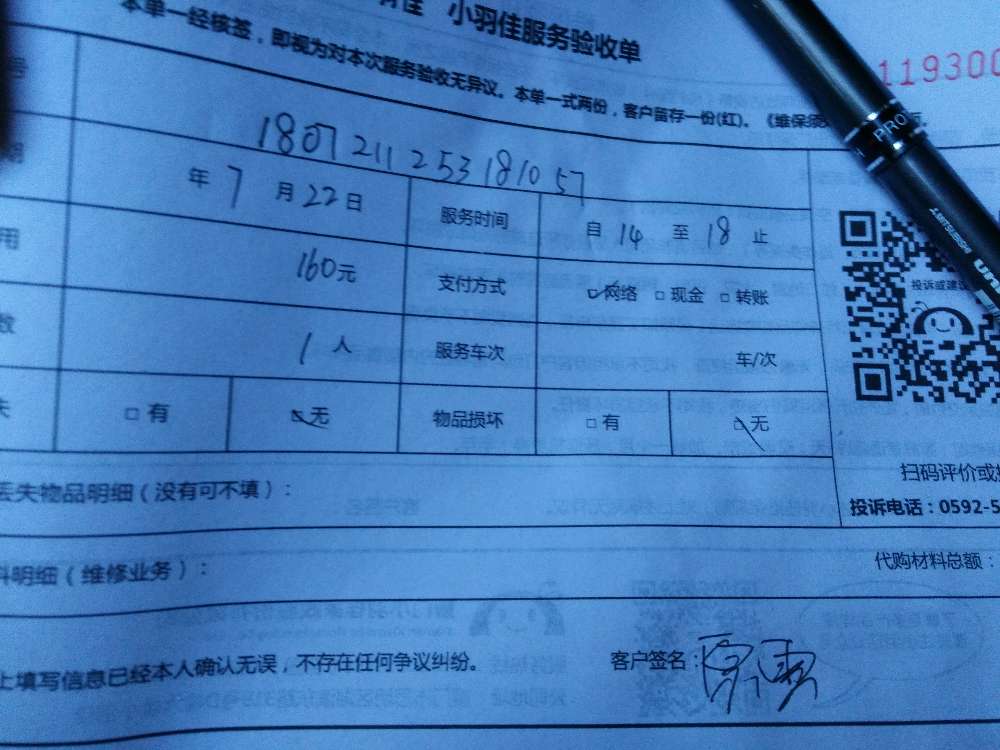 小羽佳服务验收单
119300
本单一经核签，即视为对本次服务验收无异议。本单一式两份，客户留存一份(红)。《维保须
180721125318 1057
年 7 月 22 日 服务时间 自 14 至 18 止
160元 支付方式 网络 □ 现金 □ 转账
投诉或建议
1 人 服务车次 车/次
□ 有 无 物品损坏 □ 有 无
扫码评价或
丢失物品明细（没有可不填）：
投诉电话：0592-5
代购材料总额：
料明细（维修业务）：
上填写信息已经本人确认无误，不存在任何争议纠纷。 客户签名：
PRO
MITSUBISHI